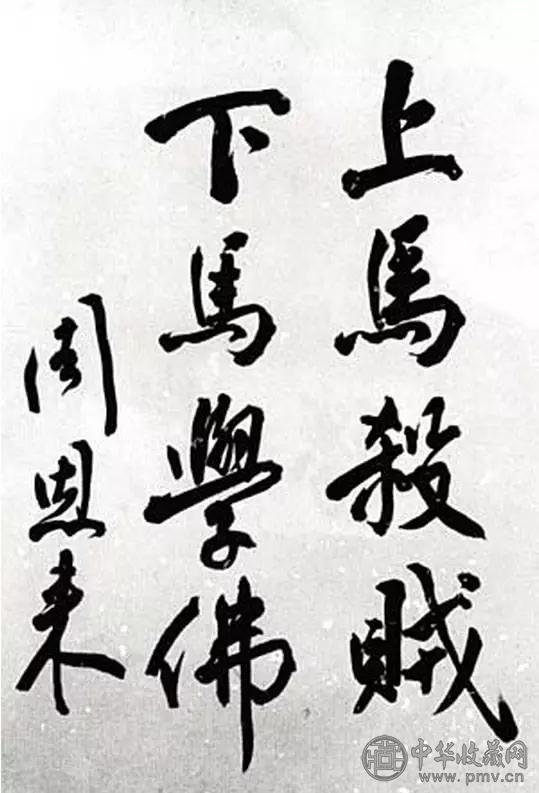 上馬殺賊
下馬學佛
周恩来
中华收藏网
www.pmv.cn